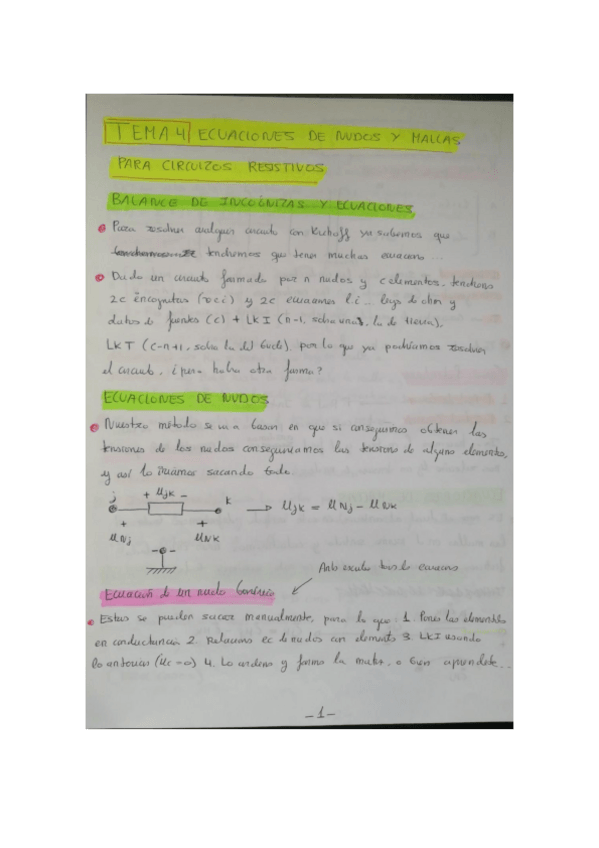 TEMA 4 ECUACIONES DE NUDOS Y MALLAS
PARA CIRCUITOS RESISTIVOS
BALANCE DE INCOGNITAS Y ECUACIONES
Para resolver cualquier circuito con Kirchoff ya sabemos que
tendremos que tener muchas ecuaciones...
Dado un circuito formado por n nudos y c elementos, tendremos
2c incognitas y 2c ecuaciones leyes de ohm y
datos de fuentes (c) + LKI (n-1, la de tierra),
LKT (c-n+1, del bucle), por lo que ya podríamos resolver
el circuito, ¿pero habrá otra forma?
ECUACIONES DE NUDOS
Nuestro método se va a basar en que si conseguimos obtener las
tensiones de los nudos conseguiríamos las tensiones de algunos elementos,
y así lo iríamos sacando todo.
j + Ujk - k → Ujk = UNj - UNK
+ +
UNj UNK
-
Ecuación de un nudo Genérico
Estas se pueden sacar manualmente, para lo que: 1. Pones los elementos
en conductancia 2. Relaciono ec de nudos con elemento 3. LKI usando
lo anterior 4. Lo ordeno y formo la matriz, o bien aprendete...
-1-